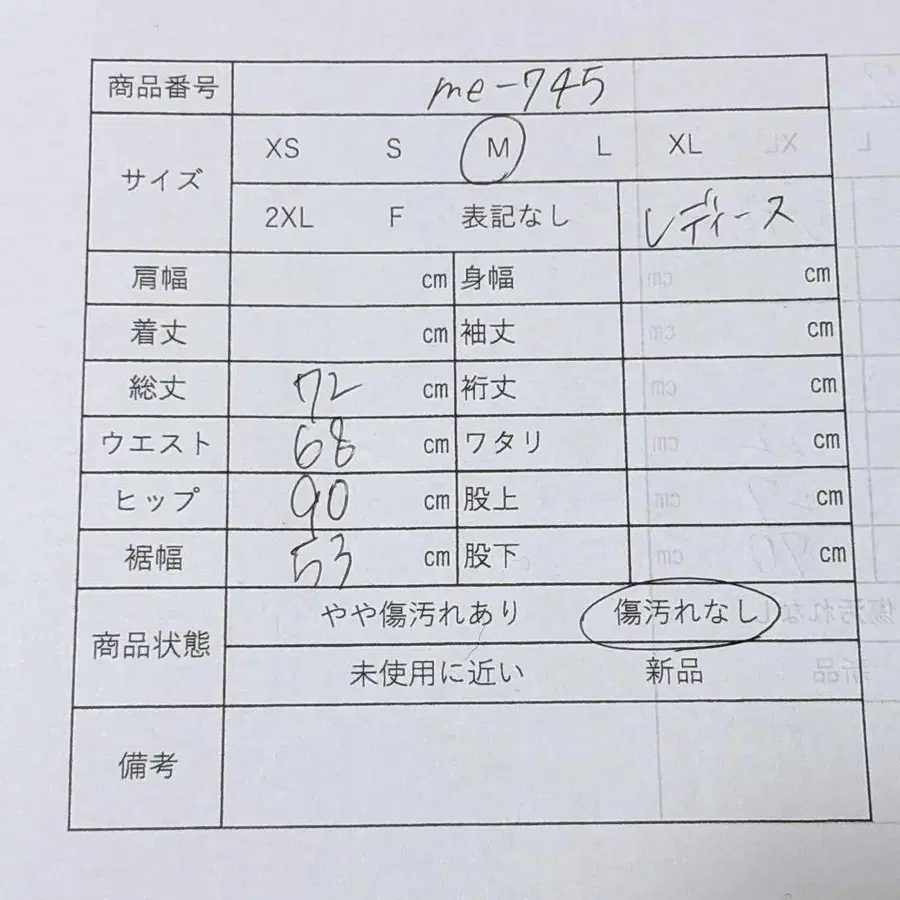 商品番号 me-745
サイズ XS S M L XL
2XL F 表記なし レディース
肩幅 cm 身幅 cm
着丈 cm 袖丈 cm
総丈 72 cm 裄丈 cm
ウエスト 68 cm ワタリ cm
ヒップ 90 cm 股上 cm
裾幅 53 cm 股下 cm
商品状態 やや傷汚れあり 傷汚れなし
未使用に近い 新品
備考